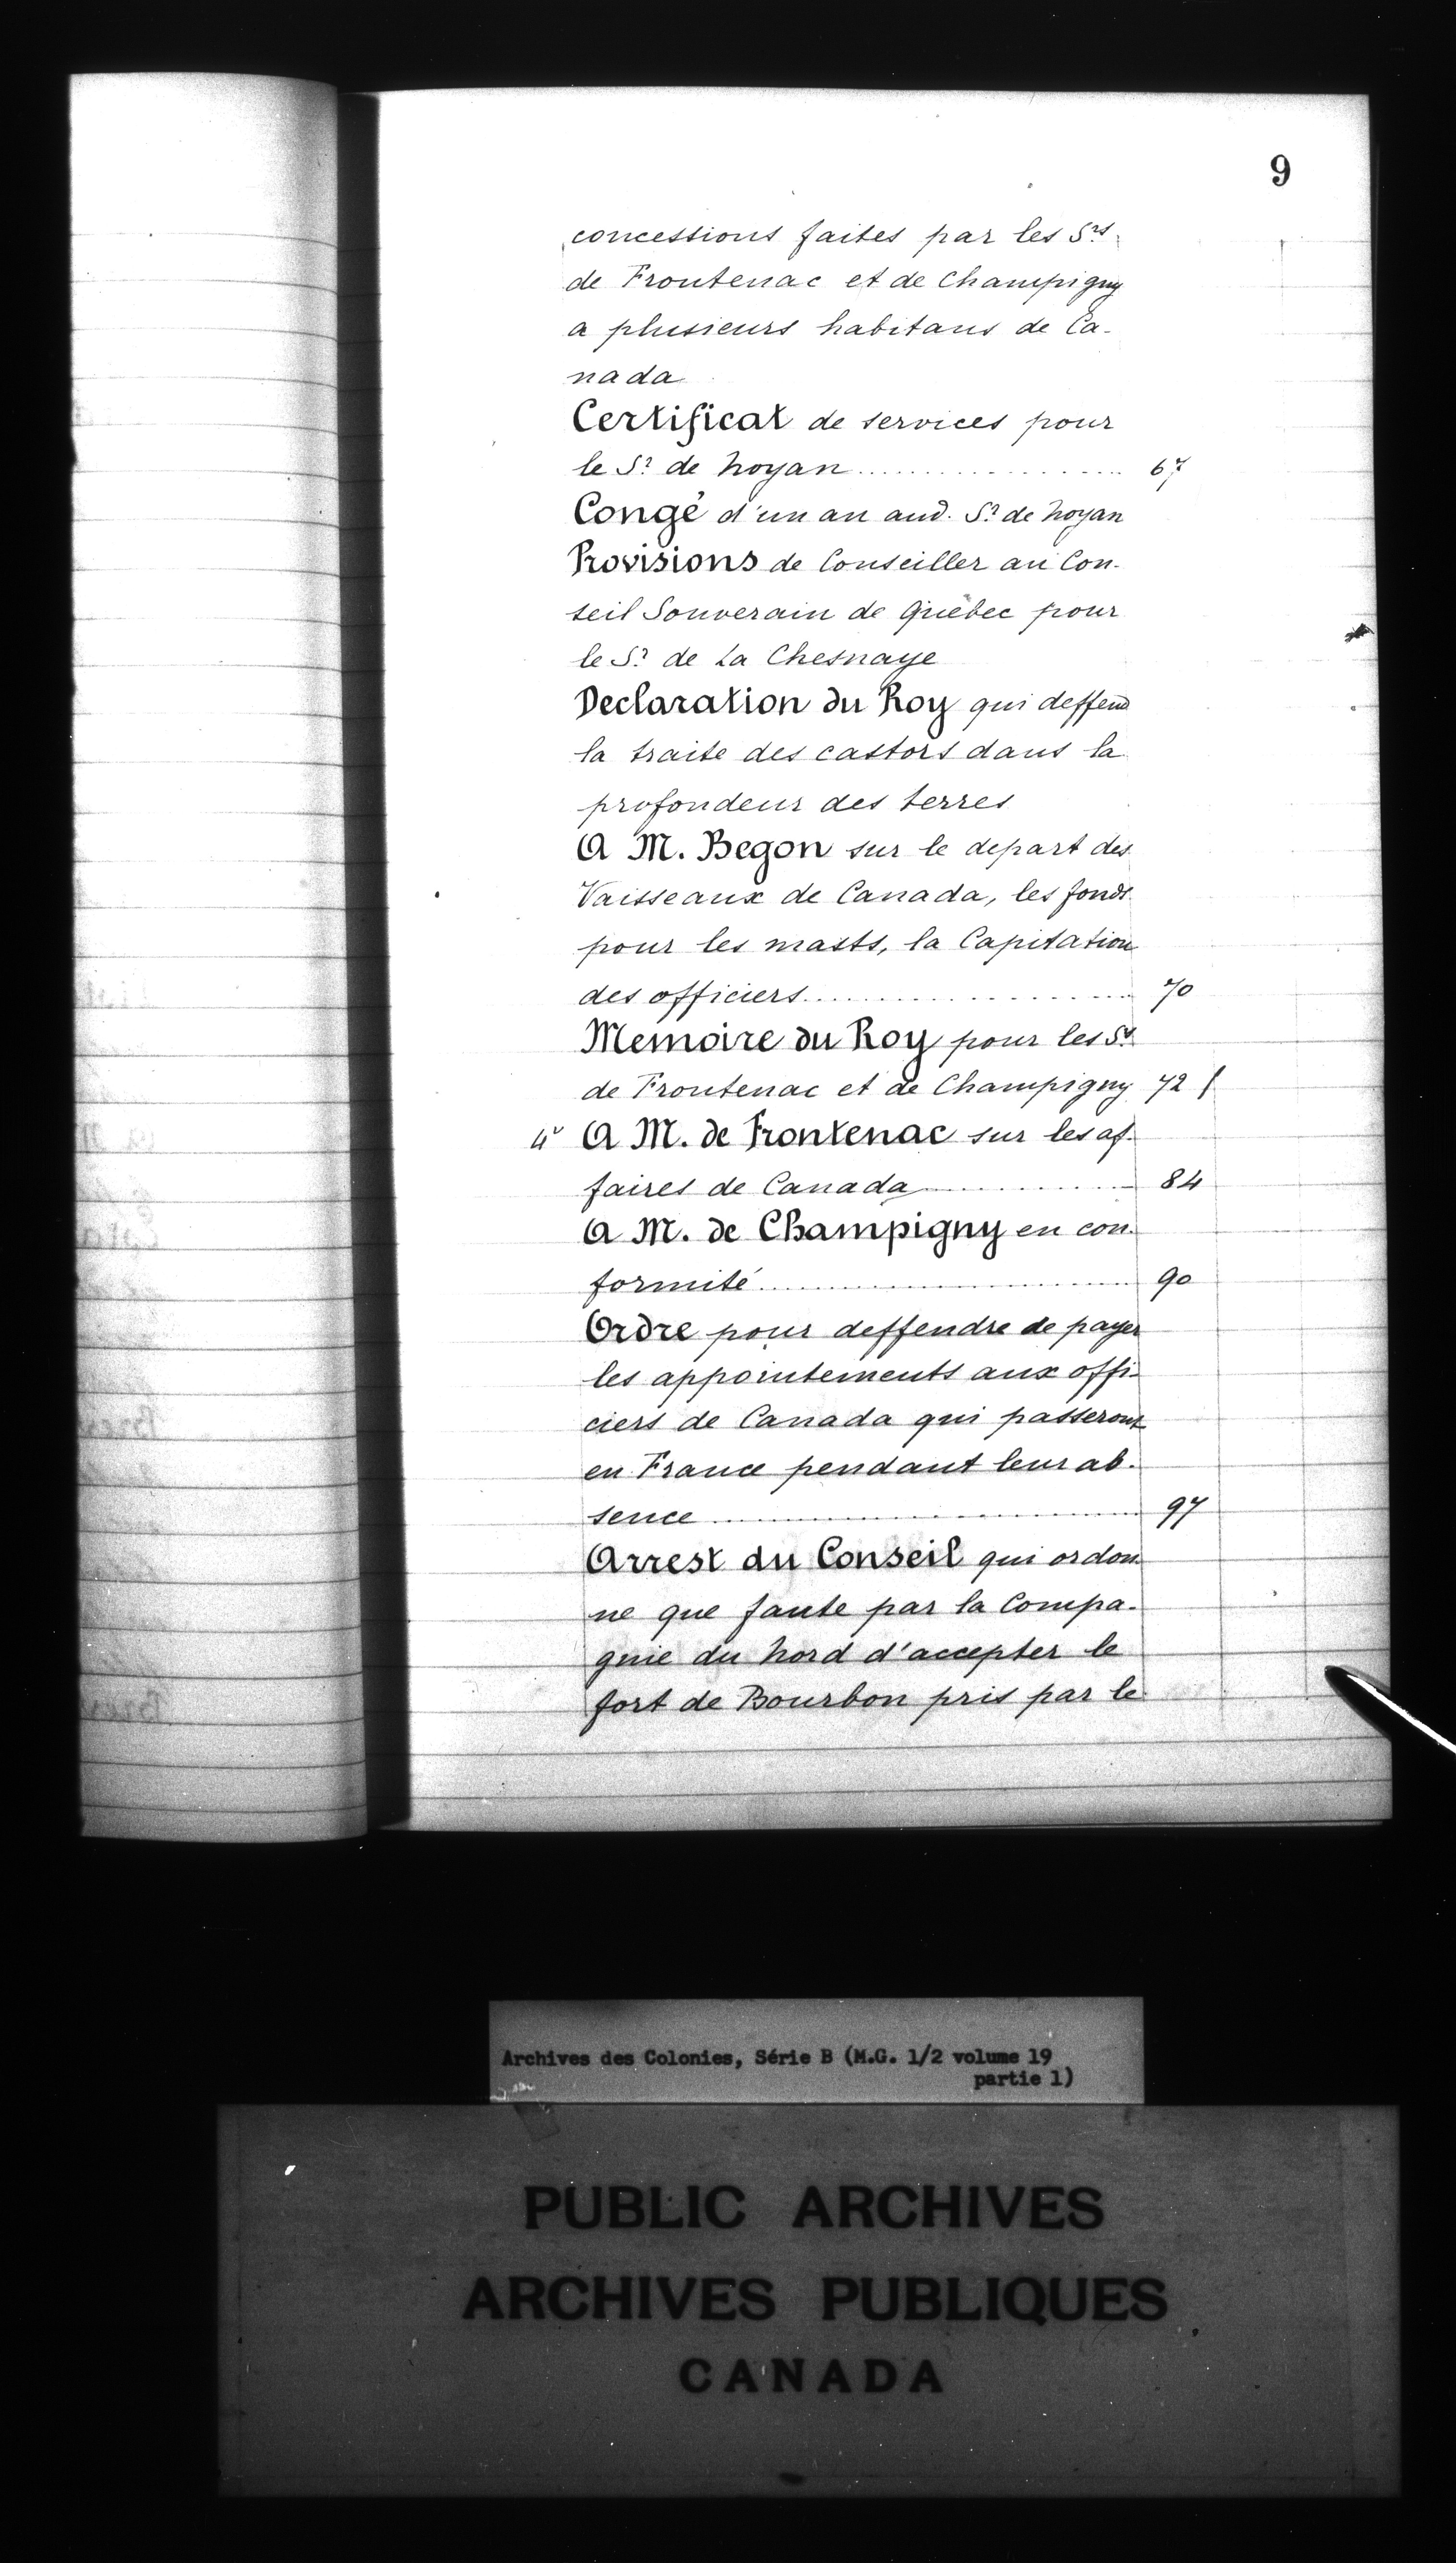 9
concessions faites par les Srs
de Frontenac et de Champigny
a plusieurs habitans de Ca-
nada
Certificat de services pour
le Sr de Noyan .................. 67
Congé d'un an aud. Sr de Noyan
Provisions de Conseiller au Con-
seil Souverain de Québec pour
le Sr de La Chesnaye
Declaration du Roy qui deffend
la traite des castors dans la
profondeur des terres
A M. Begon sur le depart des
Vaisseaux de Canada, les fonds
pour les masts, la Capitation
des officiers .................. 70
Memoire du Roy pour les Srs
de Frontenac et de Champigny 72
A M. de Frontenac sur les af-
faires de Canada .................. 84
A M. de Champigny en con-
formité .................. 90
Ordre pour deffendre de payer
les appointements aux offi-
ciers de Canada qui passeront
en France pendant leur ab-
sence .................. 97
Arrest du Conseil qui ordon-
ne que faute par la Compa-
gnie du Nord d'accepter le
fort de Bourbon pris par le
Archives des Colonies, Série B (M.G. 1/2 volume 19
partie 1)
PUBLIC ARCHIVES
ARCHIVES PUBLIQUES
CANADA